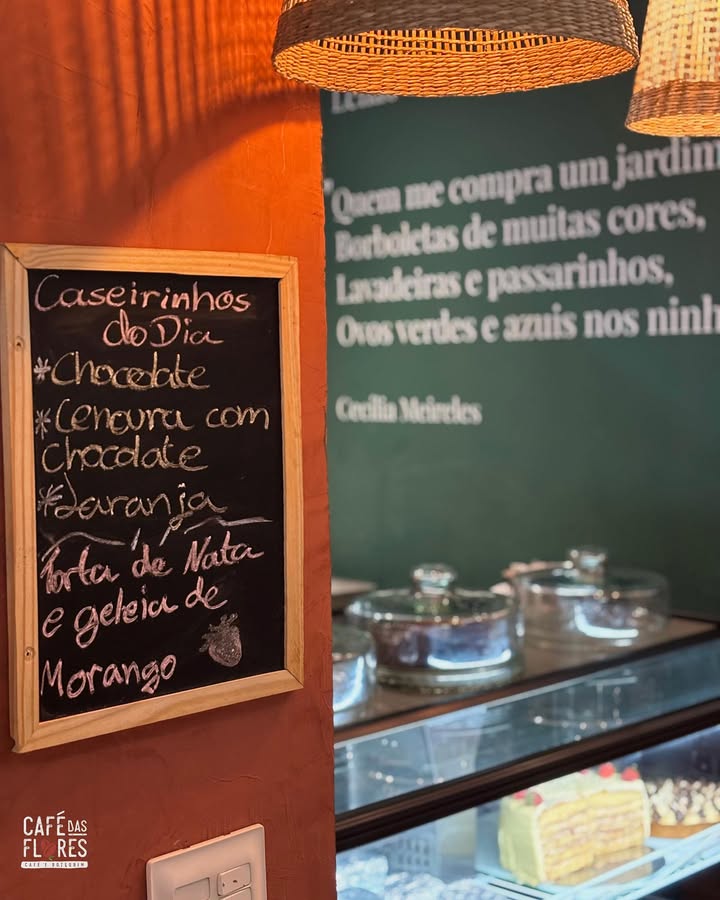 Caseirinhos
do Dia
*Chocolate
*Cenoura com
Chocolate
*Laranja
Torta de Nata
e geleia de
Morango
"Quem me compra um jardim
Borboletas de muitas cores,
Lavadeiras e passarinhos,
Ovos verdes e azuis nos ninh
Cecília Meireles
CAFÉ DAS
FLORES